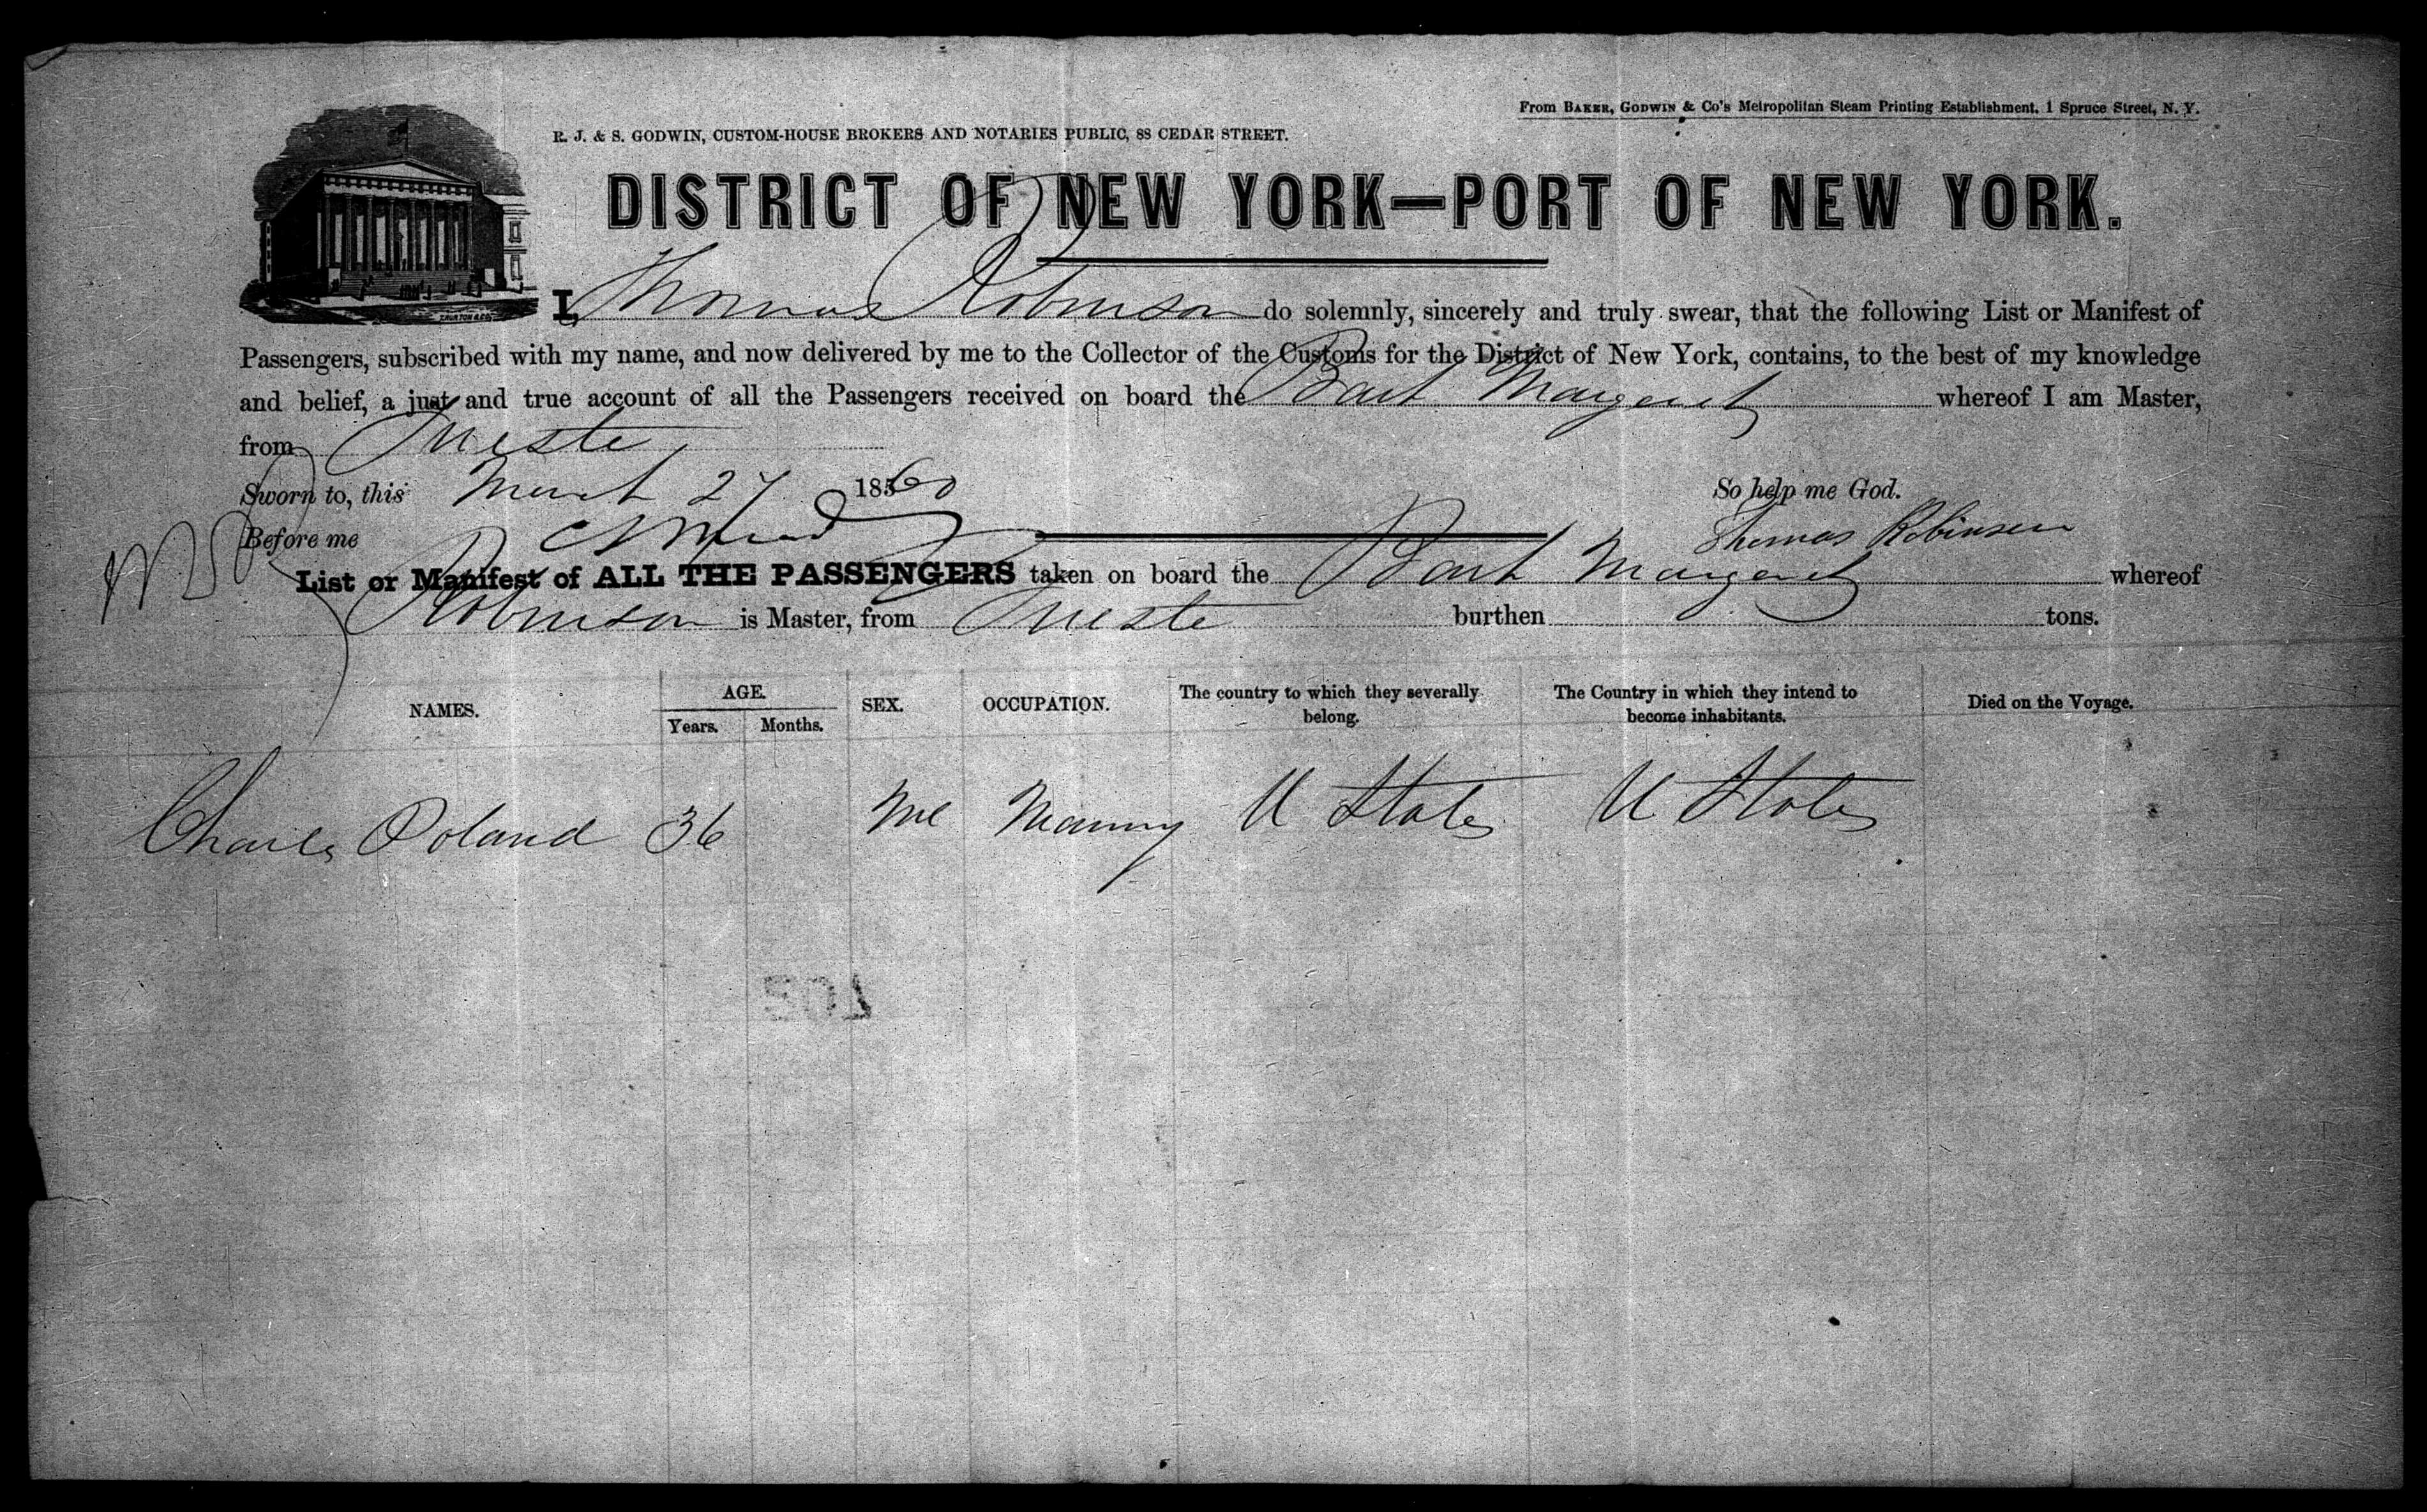 From BAKER, GODWIN & Co's Metropolitan Steam Printing Establishment, 1 Spruce Street, N. Y.
R. J. & S. GODWIN, CUSTOM-HOUSE BROKERS AND NOTARIES PUBLIC, 88 CEDAR STREET.
DISTRICT OF NEW YORK—PORT OF NEW YORK.
I, Thomas Robinson do solemnly, sincerely and truly swear, that the following List or Manifest of
Passengers, subscribed with my name, and now delivered by me to the Collector of the Customs for the District of New York, contains, to the best of my knowledge
and belief, a just and true account of all the Passengers received on board the Bark Margaret whereof I am Master,
from Trieste
Sworn to, this March 27 1860 So help me God.
Before me Thomas Robinson
List or Manifest of ALL THE PASSENGERS taken on board the Bark Margaret whereof
Robinson is Master, from Trieste burthen tons.
NAMES. AGE. SEX. OCCUPATION. The country to which they severally belong. The Country in which they intend to become inhabitants. Died on the Voyage.
Years. Months.
Charles Poland 36 Ml U States U States